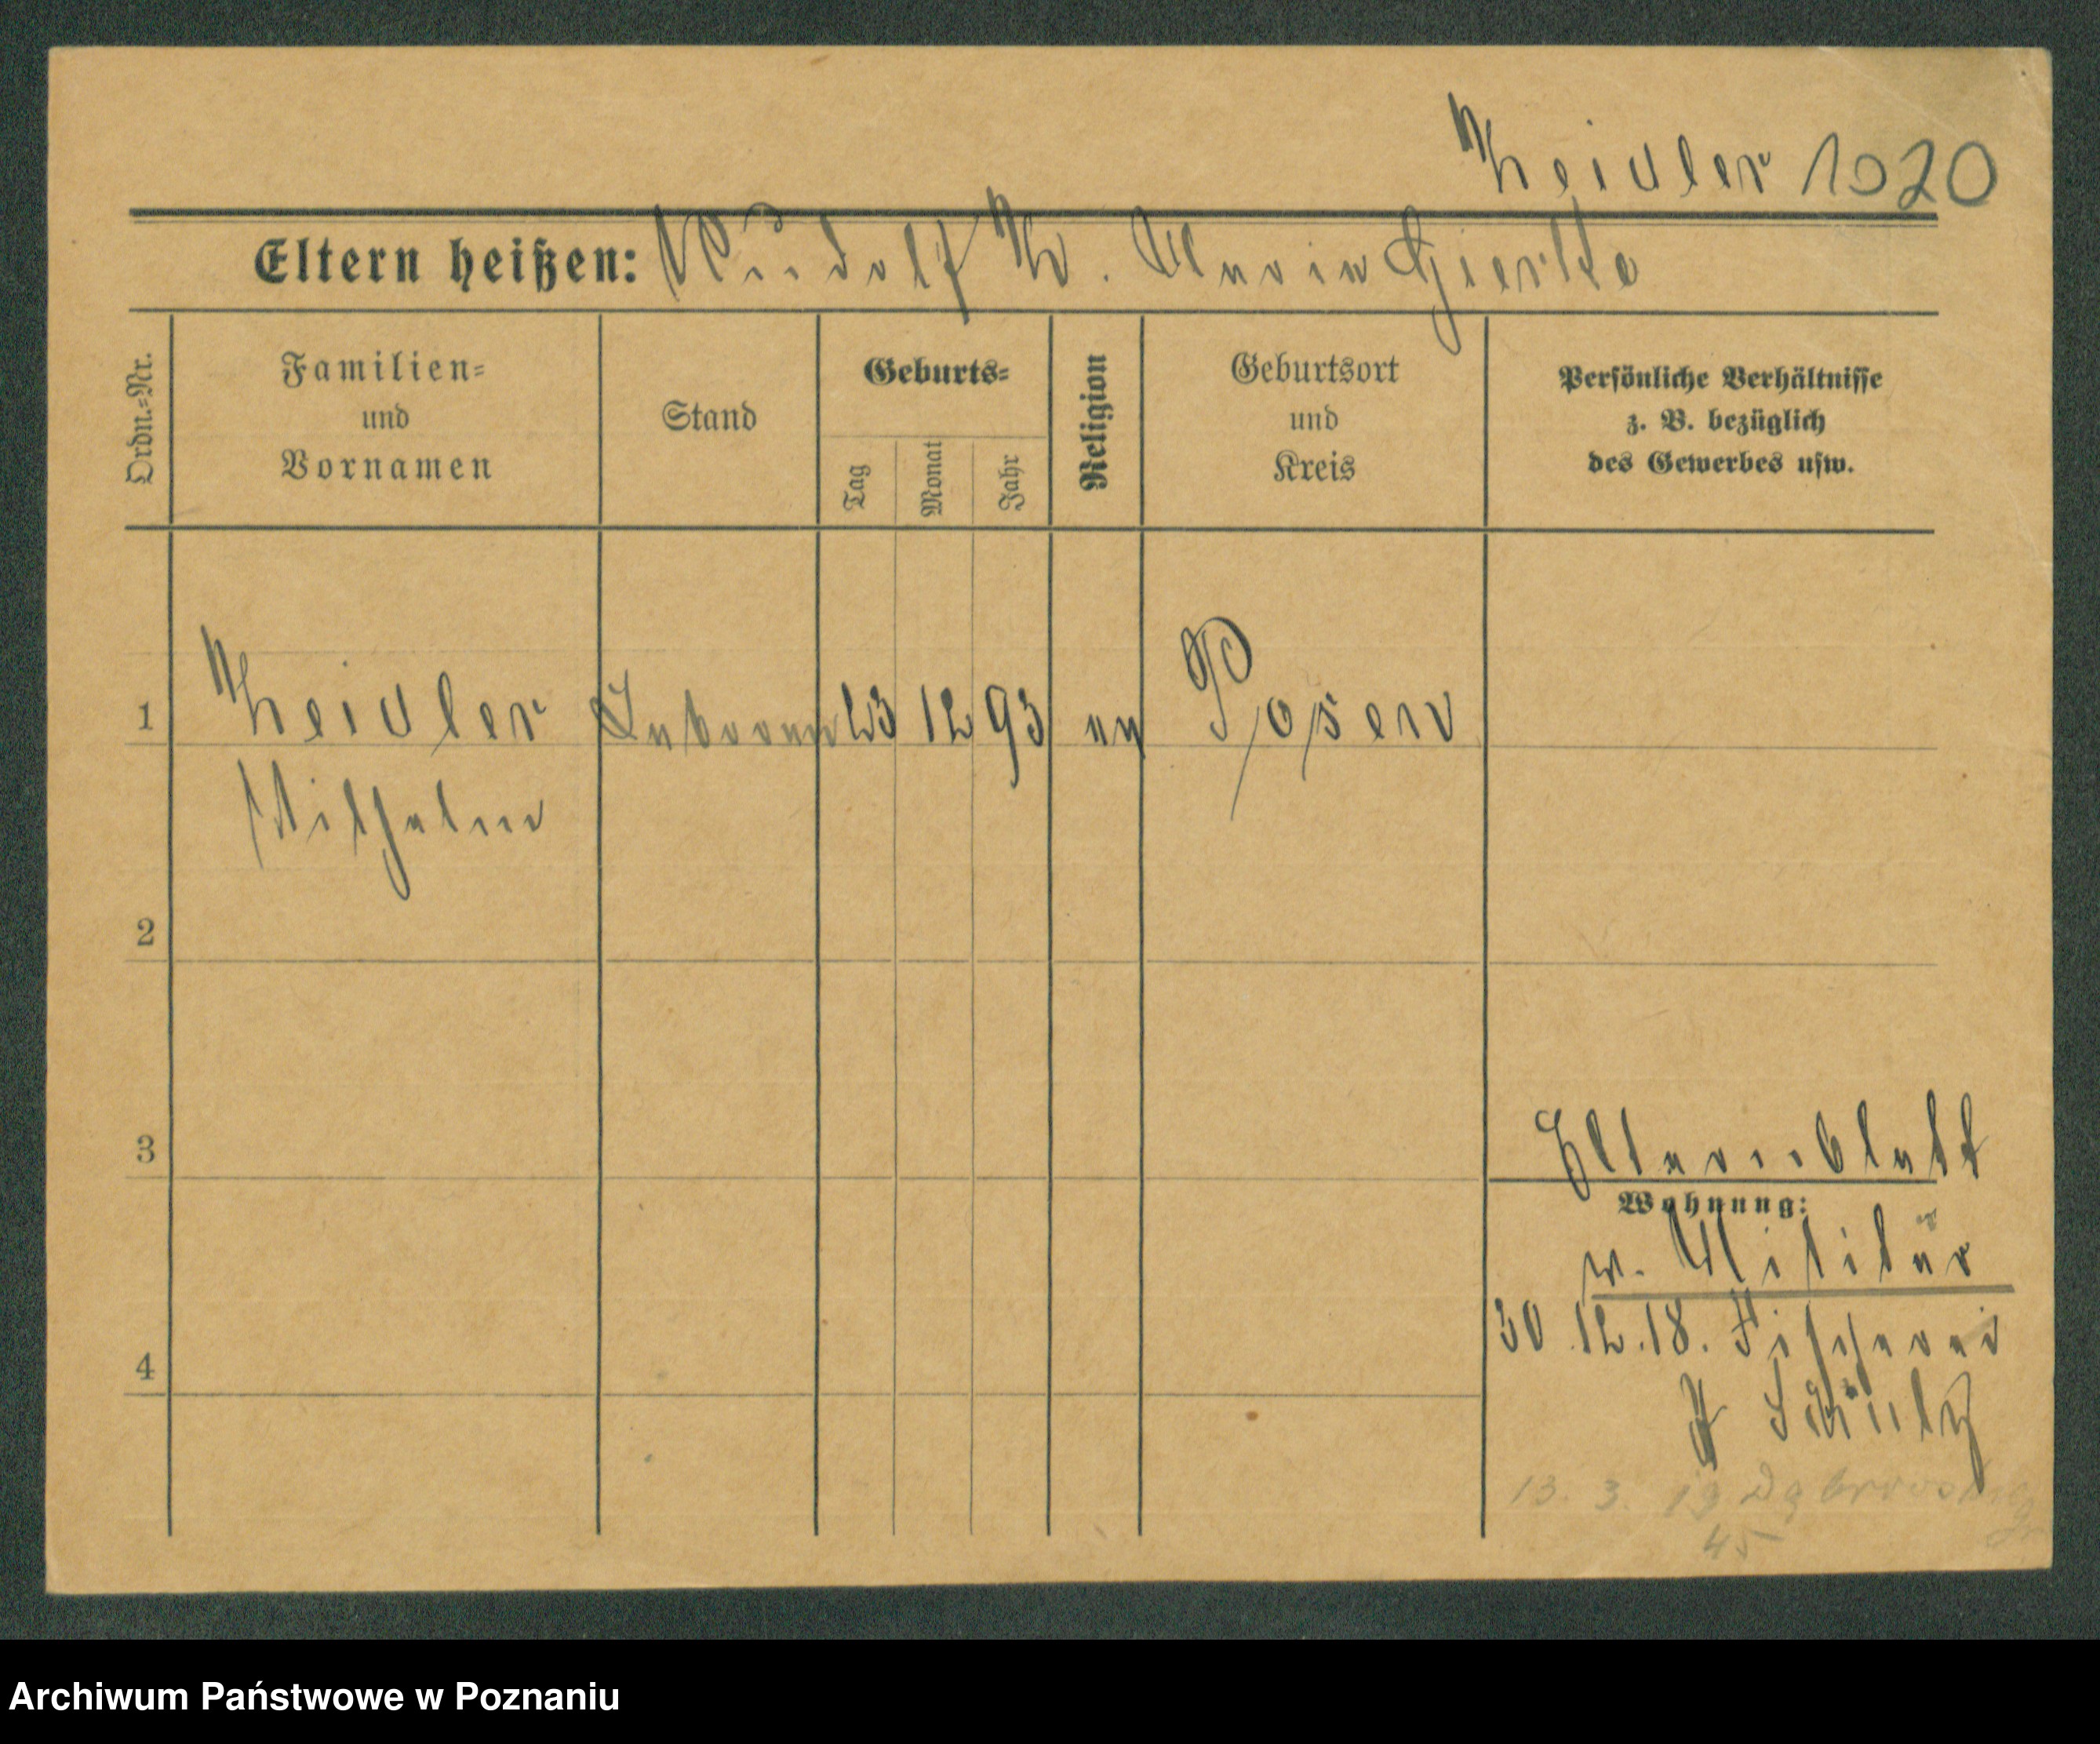 Zeidler 1020
Eltern heißen: Rudolf
Ordn.=Nr.
Familien=
und
Vornamen
Stand
Geburts=
Tag
Monat
Jahr
Religion
Geburtsort
und
Kreis
Persönliche Verhältnisse
z. B. bezüglich
des Gewerbes usw.
1 Zeidler 23 12 93 ev Posen
Wilhelm
2
3
Elternblatt
Wohnung:
v. Militär
30.12.18. Fischerei
4
13. 3. 19
45
Archiwum Państwowe w Poznaniu